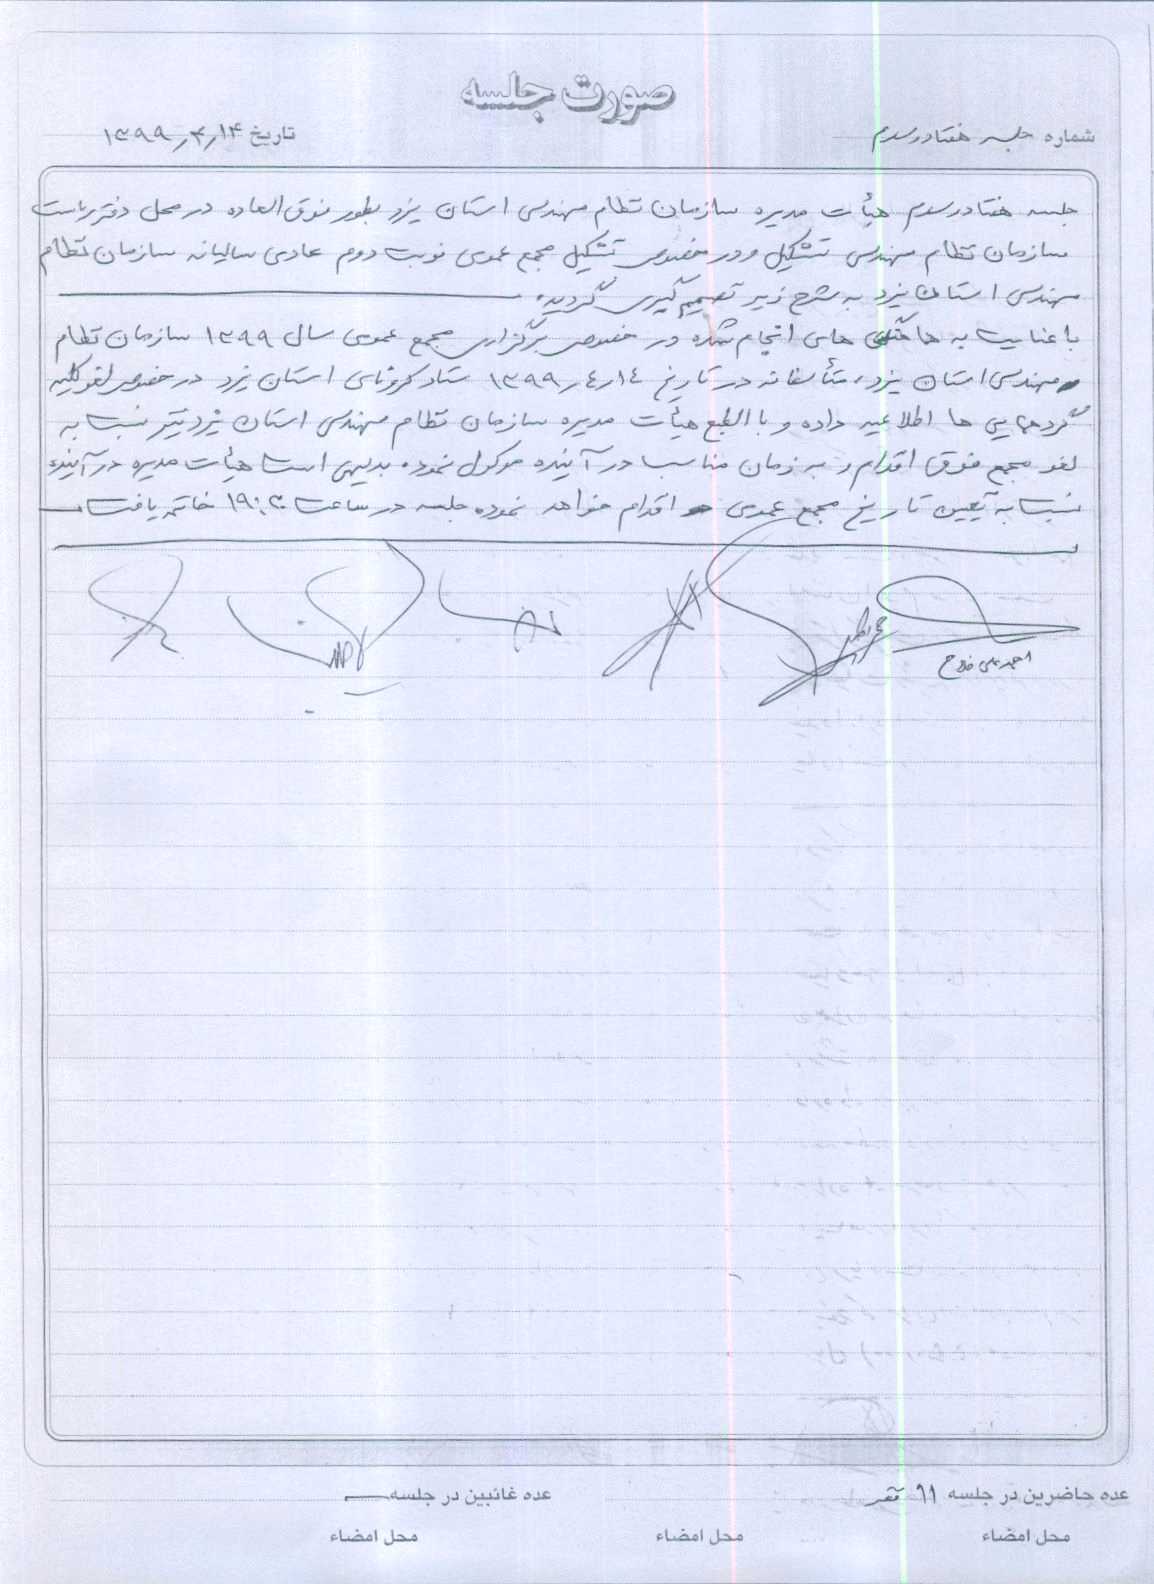 صورت جلسه
شماره جلسه هفتاد و سوم
تاریخ ۱۳۹۹٫۴٫۱۴
جلسه هفتاد و سوم هیأت مدیره سازمان نظام مهندسی استان یزد بطور فوق العاده در محل دفتر ریاست
سازمان نظام مهندسی تشکیل و در خصوص تشکیل مجمع عمومی نوبت دوم عادی سالیانه سازمان نظام
مهندسی استان یزد به شرح زیر تصمیم گیری گردید.
با عنایت به هماهنگی های انجام شده در خصوص برگزاری مجمع عمومی سال ۱۳۹۹ سازمان نظام
مهندسی استان یزد، متأسفانه در تاریخ ۱۳۹۹٫۴٫۱۴ ستاد کرونای استان یزد در خصوص لغو کلیه
گردهمایی ها اطلاعیه داده و با الطبع هیأت مدیره سازمان نظام مهندسی استان یزد نیز نسبت به
لغو مجمع فوق اقدام و به زمان مناسب در آینده موکول نمود. بدیهی است هیأت مدیره در آینده
نسبت به تعیین تاریخ مجمع عمومی اقدام خواهد نمود جلسه در ساعت ۱۹:۳۰ خاتمه یافت
احمد علی فلاح
عده حاضرین در جلسه ۱۱ نفر
عده غائبین در جلسه
محل امضاء
محل امضاء
محل امضاء